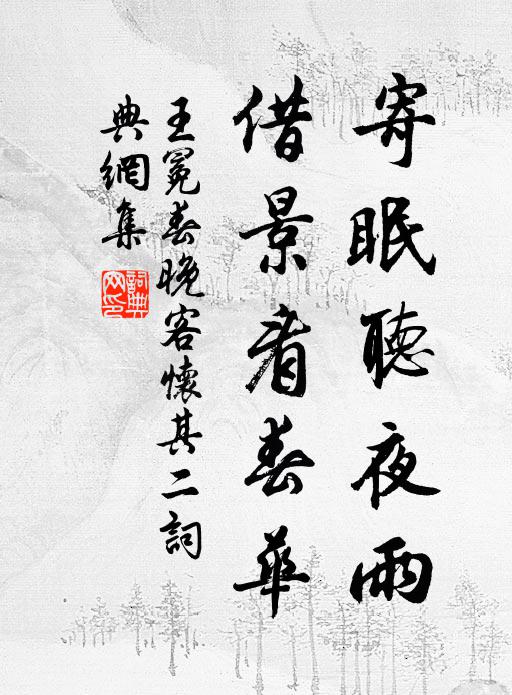 寄眠聽夜雨
借景看春華
王冕春晚客懷其二詞
典網集
詞典網印